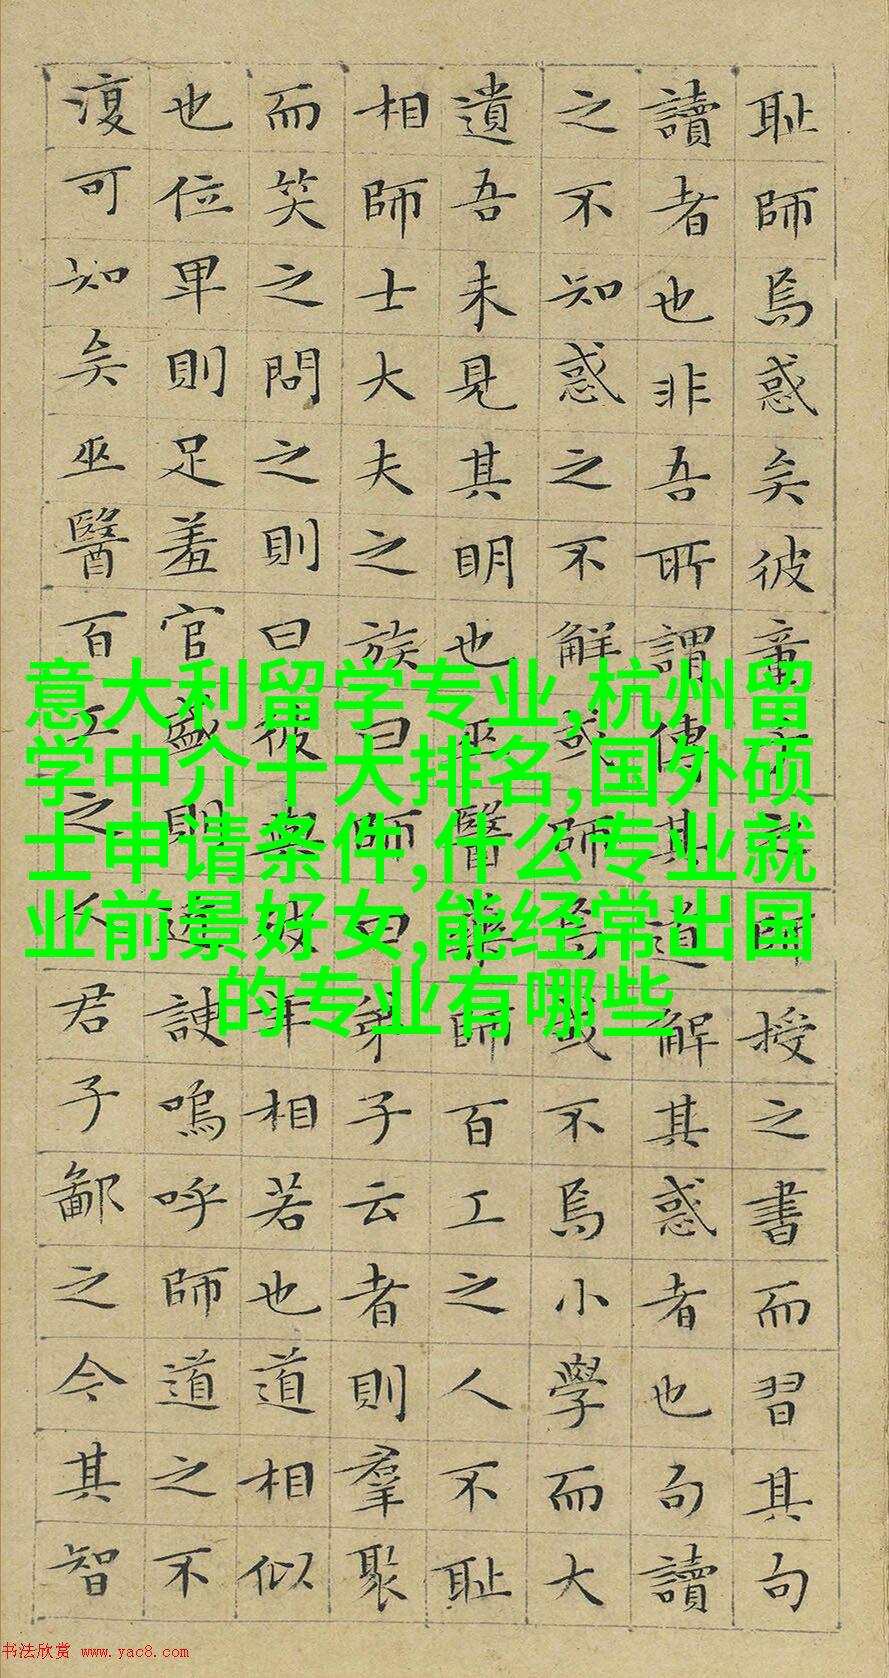 耻師焉惑矣彼童子之師授之書而習其句
讀者也非吾所謂傳其道解其惑者也句讀
之不知惑之不解或師焉或不焉小學而大
遺吾未見其明也巫醫樂師百工之人不耻
相師士大夫之族曰師曰弟子云者則羣聚
而笑之問之則曰彼與彼年相若也道相似
也位卑則足羞官盛則近諛嗚呼師道之不
復可知矣巫醫百工之人君子鄙之今其智
意大利留学专业,杭州留
学中介十大排名,国外硕
士申请条件,什么专业就
业前景好女,能经常出国
的专业有哪些
书法欣赏 www.yac8.com